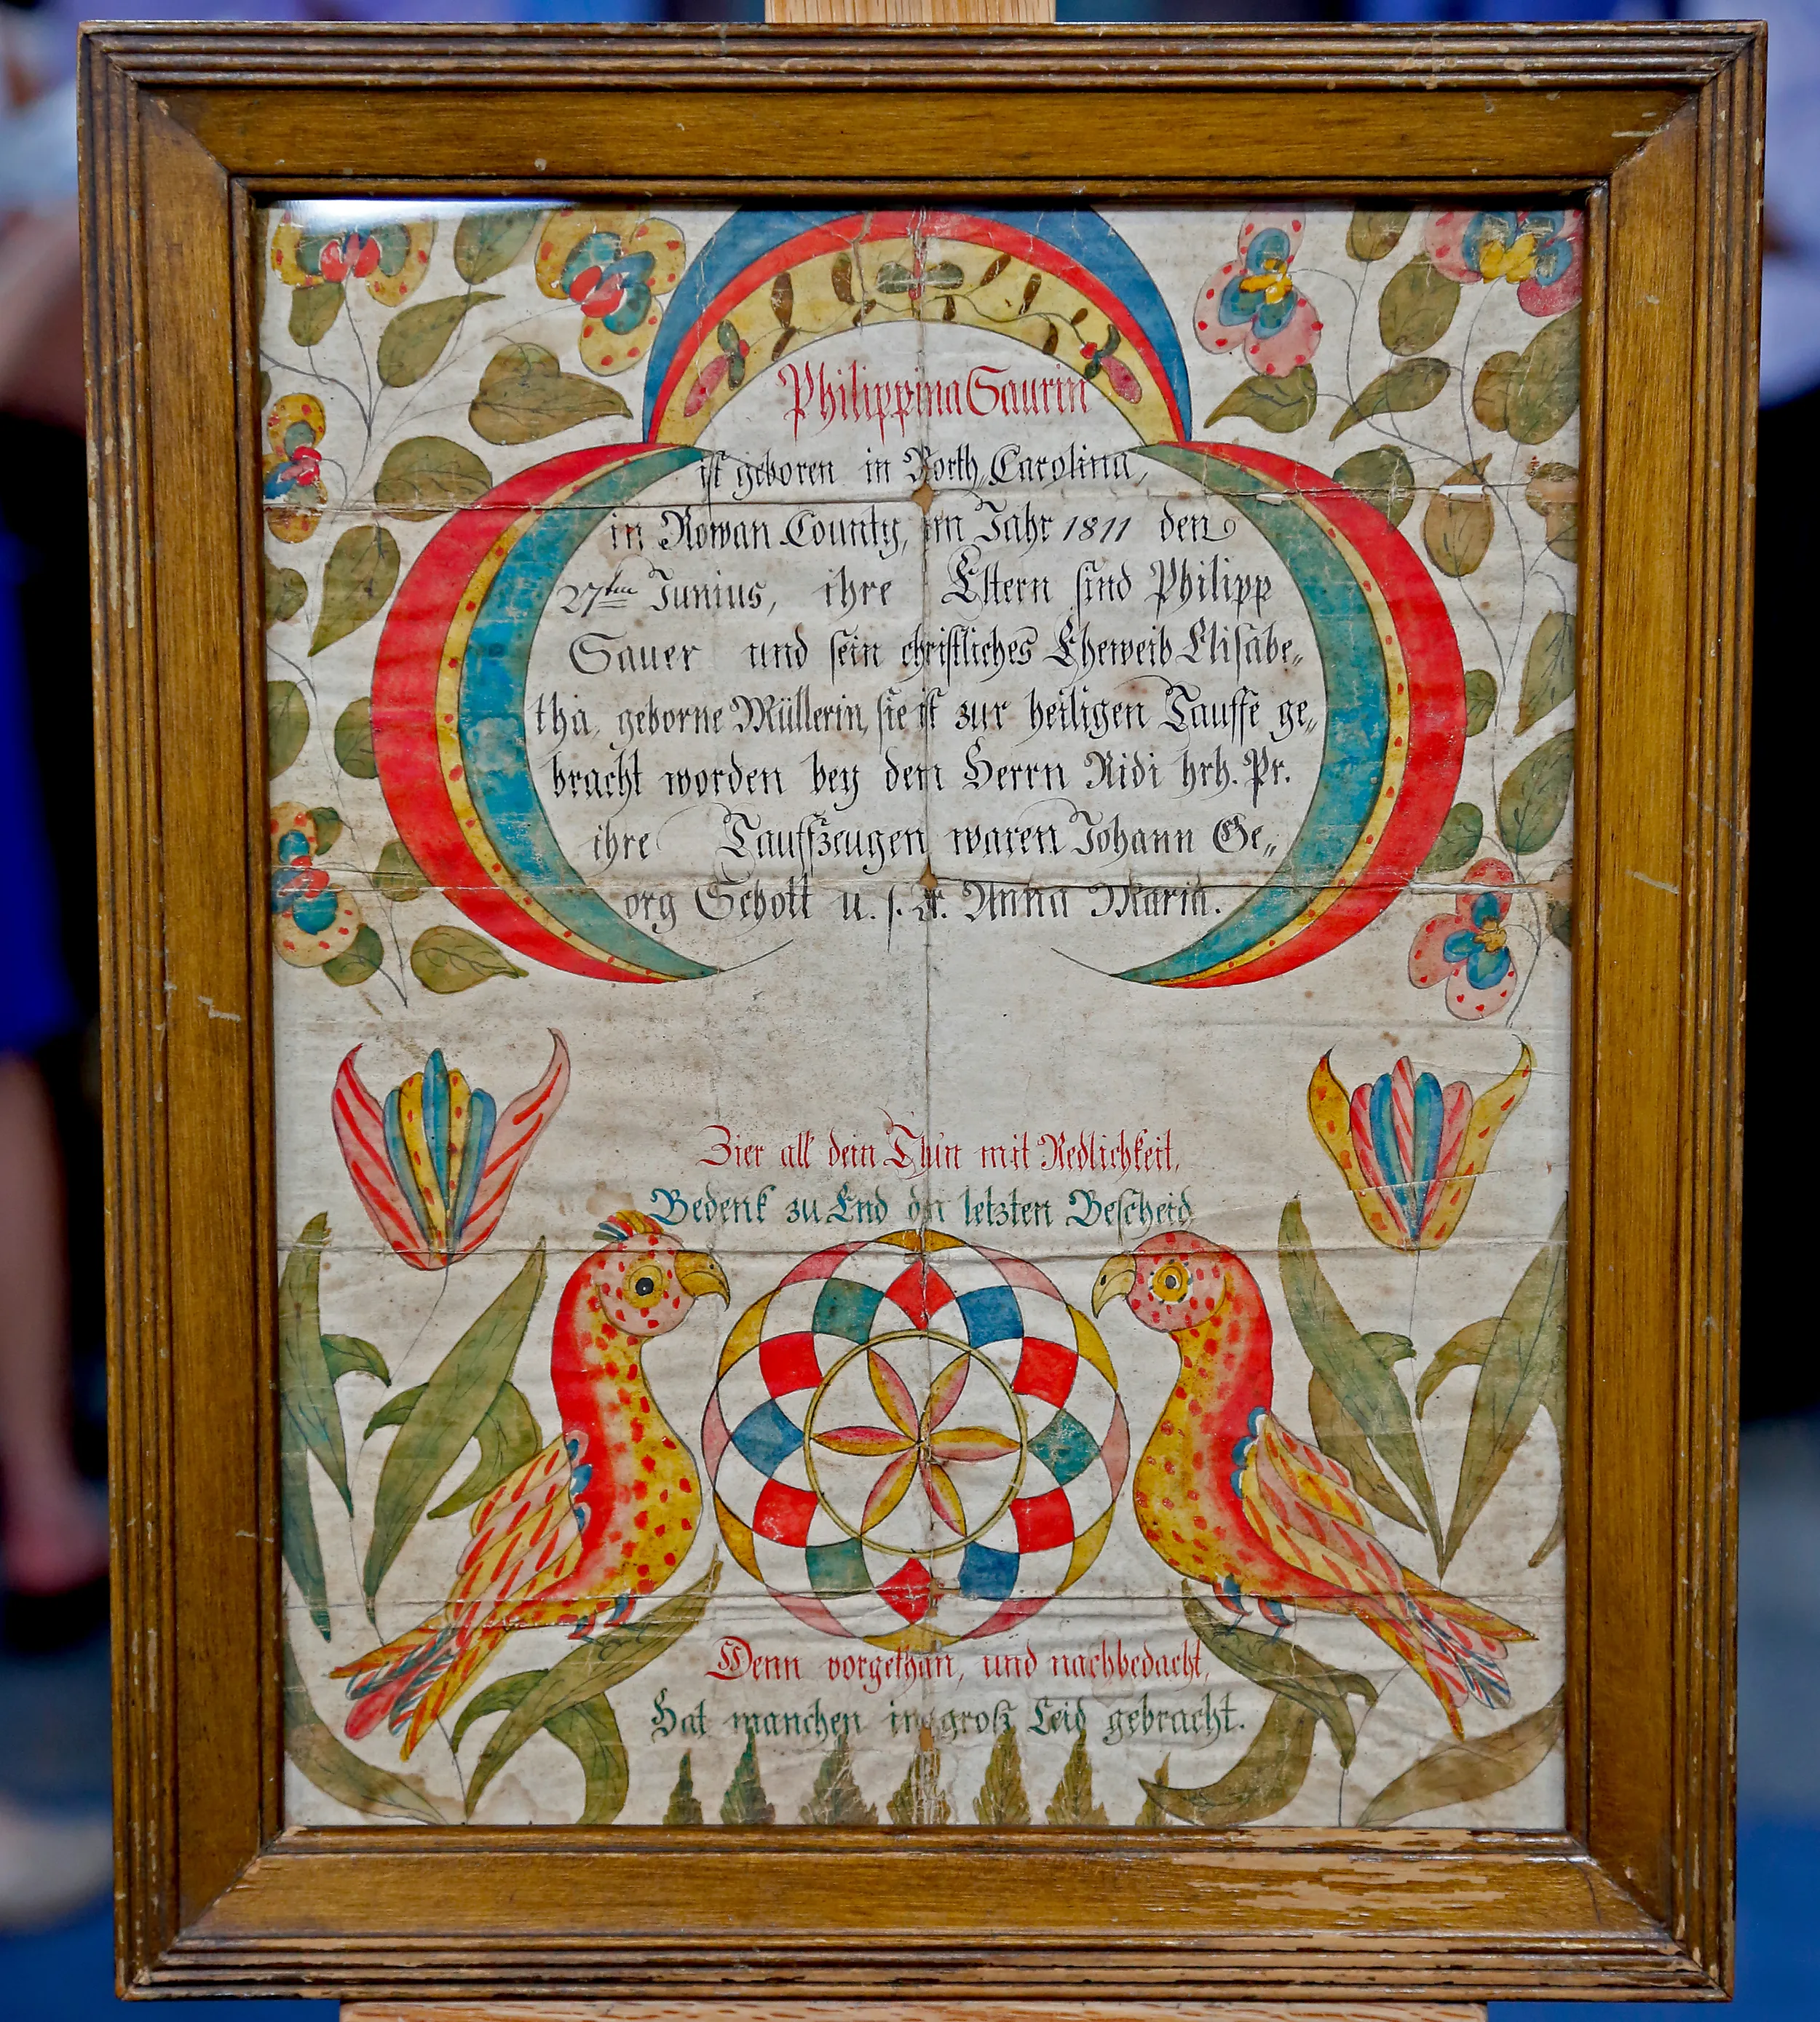 Philippina Saurin
ist geboren in North, Carolina,
in Rowan County, im Jahr 1811 den
27ten Junius, ihre Eltern sind Philipp
Sauer und sein christliches Eheweib Elisabe„
tha, geborne Müllerin, sie ist zur heiligen Tauffe ge„
bracht worden bey dem Herrn Ridi hrh. Pr.
ihre Tauffzeugen waren Johann Ge„
org Schott u. s. Fr. Anna Maria.
Zier all dein Thun mit Redlichkeit,
Bedenk zu End den letzten Bescheid
Denn vorgethan, und nachbedacht,
Hat manchen in groß Leid gebracht.